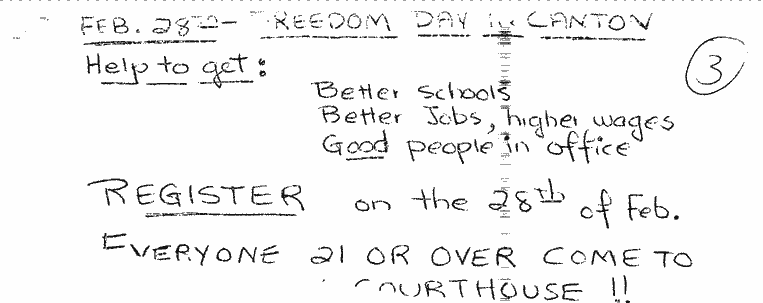 FEB. 28TH - FREEDOM DAY in CANTON
Help to get:
3
Better schools
Better Jobs, higher wages
Good people in office
REGISTER on the 28th of Feb.
EVERYONE 21 OR OVER COME TO
COURTHOUSE !!